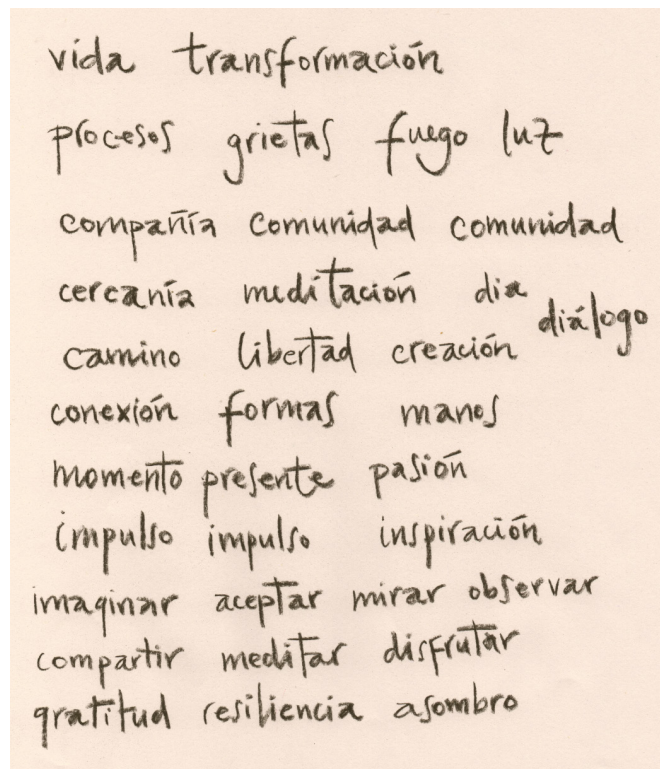 vida transformación
procesos grietas fuego luz
compañía comunidad comunidad
cercanía meditación dia
diálogo
camino libertad creación
conexión formas manos
momento presente pasión
impulso impulso inspiración
imaginar aceptar mirar observar
compartir meditar disfrutar
gratitud resiliencia asombro